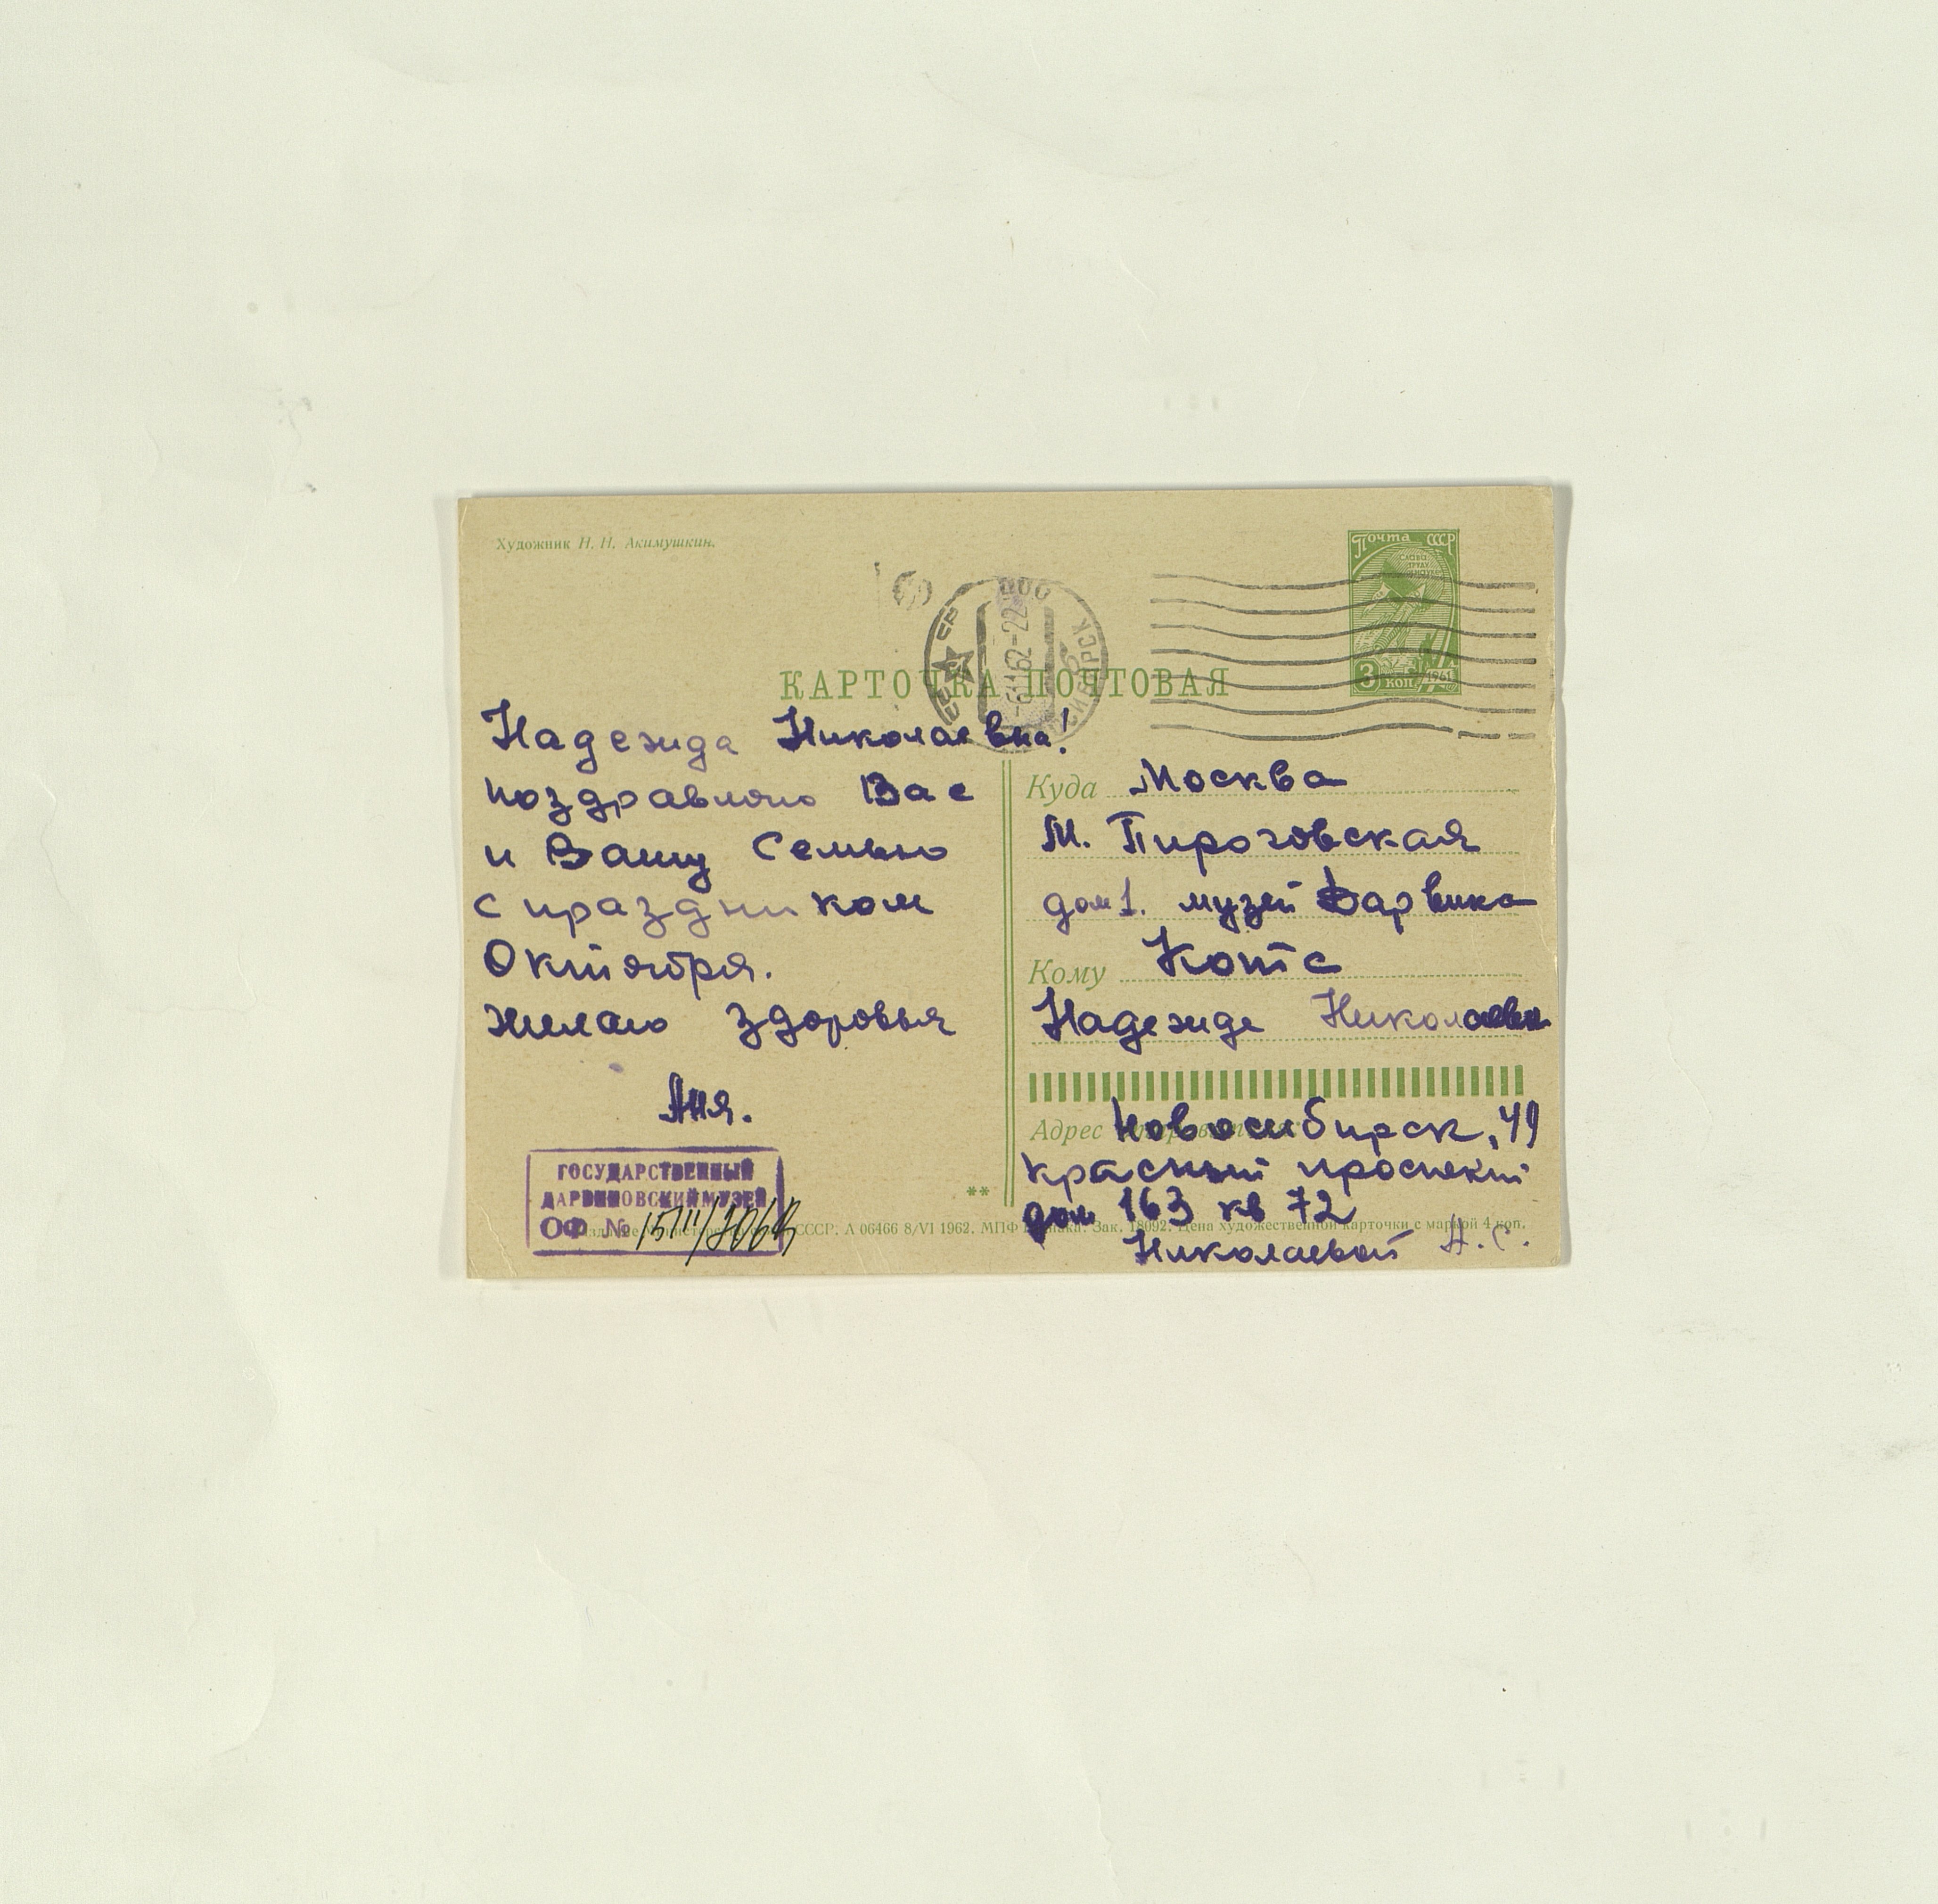 Художник Н. Н. Акимушкин.
Почта СССР
СЛАВА
ТРУДУ
3 коп. 1961
СССР
-6 11 62 -22
КАРТОЧКА ПОЧТОВАЯ
Надежда Николаевна!
поздравляю Вас
и Вашу Семью
с праздником
Октября.
желаю здоровья
Аня.
ГОСУДАРСТВЕННЫЙ
ДАРВИНОВСКИЙ МУЗЕЙ
ОФ №
Куда Москва
М. Пироговская
дом 1. музей Дарвина
Кому Котс
Надежде Николаевн
Адрес Новосибирск, 49
красный проспект
дом 163 кв 72
Николаевой А. С.
СССР. А 06466 8/VI 1962. МПФ Гознака. Зак. 18092. Цена художественной карточки с маркой 4 коп.